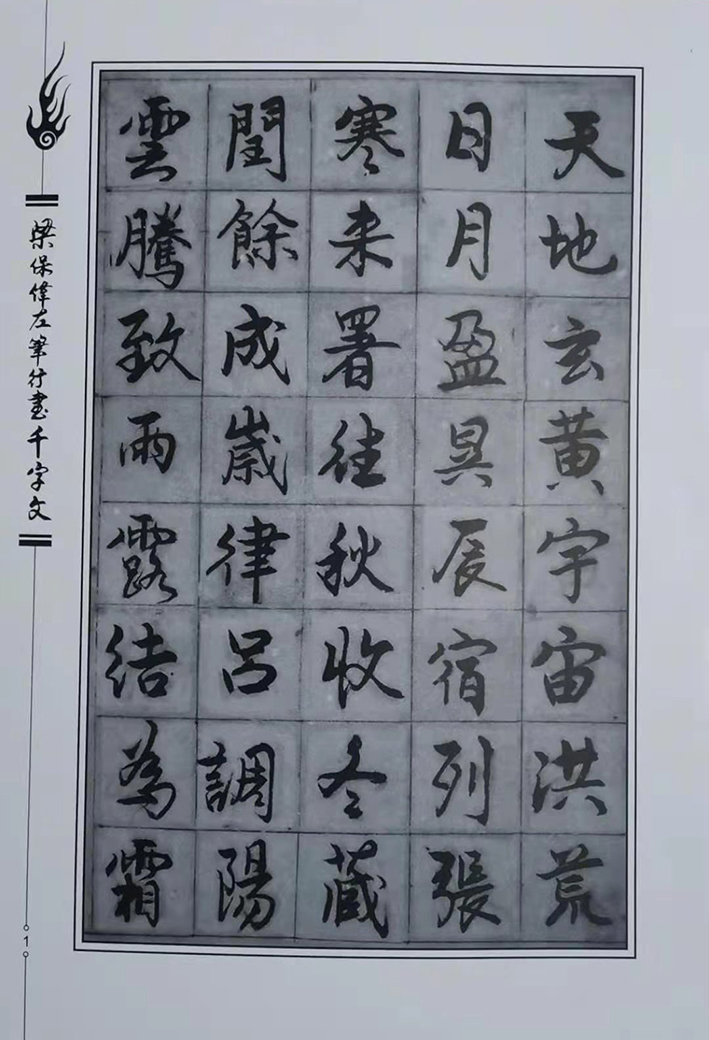 天地玄黄宇宙洪荒
日月盈昃辰宿列張
寒来署往秋收冬蔵
閏餘成歳律吕調陽
雲騰致雨露結為霜
梁保偉左筆行書千字文
1